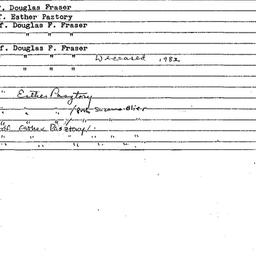 f. Douglas Fraser
f. Esther Pasztory
f. Douglas F. Fraser
" " "
f. Douglas F. Fraser
" " " Deceased 1982
" " "
" Esther Pasztory
" " " /
" Esther Pasztory /
" " " " " "
" " " " "